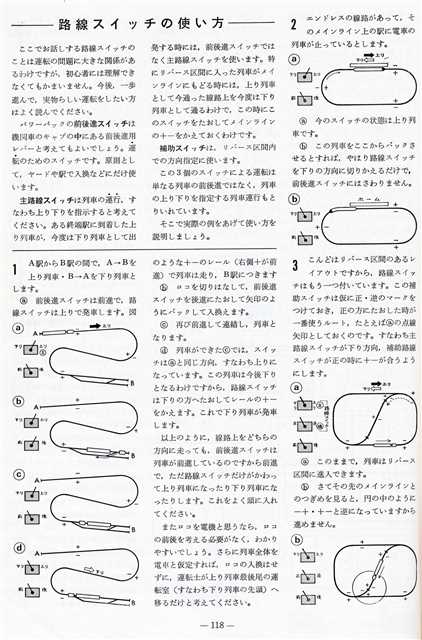 路線スイッチの使い方
ここでお話しする路線スイッチの
ことは運転の問題に大きな関係があ
るわけですが、初心者には理解でき
なくてもかまいません。今後、一歩
進んで、実物らしい運転をしたい方
はよく読んでください。
パワーパックの前後進スイッチは
機関車のキャブの中にある前後進用
レバーと考えてもよいでしょう。運
転のためのスイッチです。原則とし
て、ヤードや駅で入換などにだけ使
います。
主路線スイッチは列車の運行、す
なわち上り下りを指示すると考えて
ください。ある終端駅に到着した上
り列車が、今度は下り列車として出
発する時には、前後進スイッチでは
なく主路線スイッチを使います。特
にリバース区間に入った列車がメイ
ンラインにもどる時には、上り列車
として今通った線路上を今度は下り
列車として通るわけで、この時にこ
のスイッチをたおしてメインライン
の＋－をかえておくわけです。
補助スイッチは、リバース区間内
での方向指定に使います。
この3個のスイッチによる運転は
単なる列車の前後進ではなく、列車
の上り下りを指定する列車運転もと
りいれています。
そこで実際の例をあげて使い方を
説明しましょう。
1 A駅からB駅の間で、A→Bを
上り列車・B→Aを下り列車と
します。
ⓐ 前後進スイッチは前進で、路
線スイッチは上りで発車します。図
ⓐ
A
上り
B
ⓑ
A
B
ⓒ
A
B
ⓓ
A
下り
B
のような＋－のレール（右側＋が前
進）で列車は走り、B駅につきます
ⓑ ロコを切りはなして、前後進
スイッチを後進にたおして矢印のよ
うにバックして入換えます。
ⓒ 再び前進して連結し、列車と
なります。
ⓓ 列車ができたⓒでは、スイッ
チはⓐと同じ方向、すなわち上りに
なっています。この列車は今後下り
となるわけですから、路線スイッチ
は下りの方へたおしてレールの＋－
をかえます。これで下り列車が発車
します。
以上のように、線路上をどちらの
方向に走っても、前後進スイッチは
列車が前進しているのですから前進
で、ただ路線スイッチだけがかわっ
て上り列車になったり下り列車にな
ったりします。これをよく頭に入れ
てください。
またロコを電機と思うなら、ロコ
の前後を考える必要がなく、わかり
やすいでしょう。さらに列車全体を
電車と仮定すれば、ロコの入換はせ
ずに、運転士が上り列車最後尾の運
転室（すなわち下り列車の先頭）へ
移るだけと考えてください。
2 エンドレスの線路があって、そ
のメインライン上の駅に電車の
列車が止っているとします。
ⓐ
上り
ⓐ 今のスイッチの状態は上り列
車です。
ⓑ この列車をここからバックさ
せるとすれば、やはり路線スイッチ
を下りの方向に切りかえるだけで、
前後進スイッチにはさわりません。
ⓑ
ホーム
3 こんどはリバース区間のあるレ
イアウトですから、路線スイッ
チはもう一つ付いています。この補
助スイッチは仮に正・逆のマークを
つけておき、正の方にたおした時が
一番使うルート、たとえばⓐの点線
矢印としておくのです。すなわち主
路線スイッチが下り方向、補助路線
スイッチが正の時に＋－が合うよう
にします。
ⓐ
路線スイッチ
ⓐ このままで、列車はリバース
区間に進入できます。
ⓑ さてその先のメインラインと
のつぎめを見ると、円の中のように
－＋・＋－と逆になっていますから
進めません。
ⓑ
— 118 —